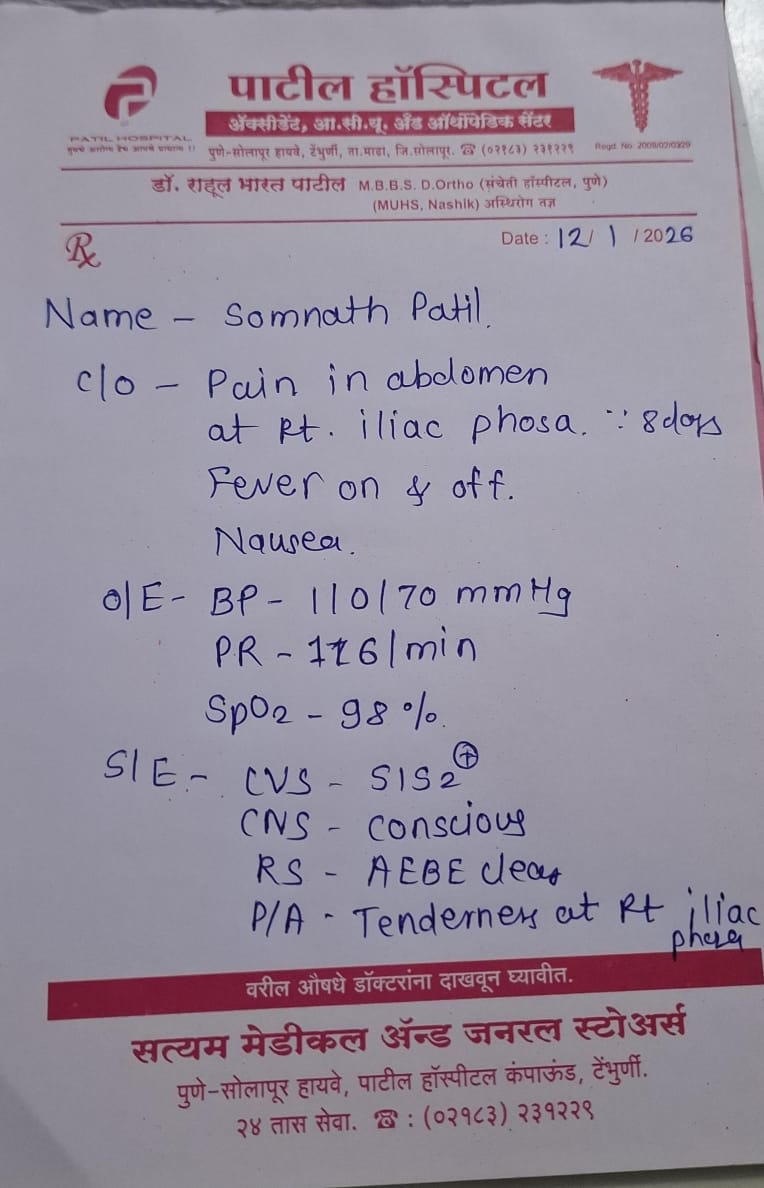 पाटील हॉस्पिटल
ॲक्सीडेंट, आ.सी.यू. अँड ऑर्थोपेडिक सेंटर
PATIL HOSPITAL
पुणे-सोलापूर हायवे, टेंभुर्णी, ता.माढा, जि.सोलापूर. ☎ (०२१८३) २३१२२९
Regd. No. 2009/02/0329
डॉ. राहूल भारत पाटील M.B.B.S. D.Ortho (संचेती हॉस्पीटल, पुणे)
(MUHS, Nashik) अस्थिरोग तज्ञ
Rx
Date : 12/ 1 / 2026
Name - Somnath Patil.
C/O - Pain in abdomen
at Rt. iliac phosa. ∵ 8 days
Fever on & off.
Nausea.
O/E - BP - 110/70 mmHg
PR - 116/min
SpO2 - 98 %.
S/E - CVS - S1S2 ⊕
CNS - conscious
RS - AEBE clear
P/A - Tenderness at Rt iliac
phosa
वरील औषधे डॉक्टरांना दाखवून घ्यावीत.
सत्यम मेडीकल ॲन्ड जनरल स्टोअर्स
पुणे-सोलापूर हायवे, पाटील हॉस्पीटल कंपाऊंड, टेंभुर्णी.
२४ तास सेवा. ☎ : (०२१८३) २३१२२९